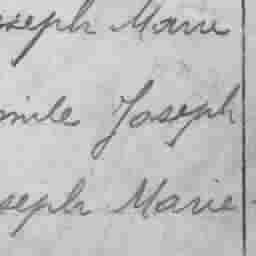 oseph Marie
mile Joseph
seph Marie